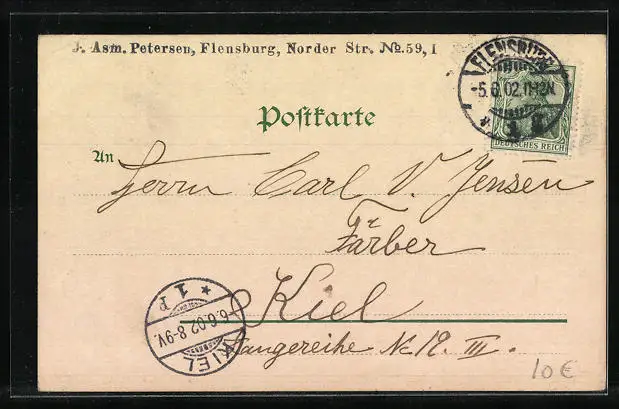 J. Asm. Petersen, Flensburg, Norder Str. No. 59, I
FLENSBURG
-5.6.02.11-12N.
* 1 g
DEUTSCHES REICH
Postkarte
An
Herrn Carl V. Jensen
Färber
Kiel
Langereihe No 19. III.
KIEL
6.6.02.8-9V.
* 1 P
10 €